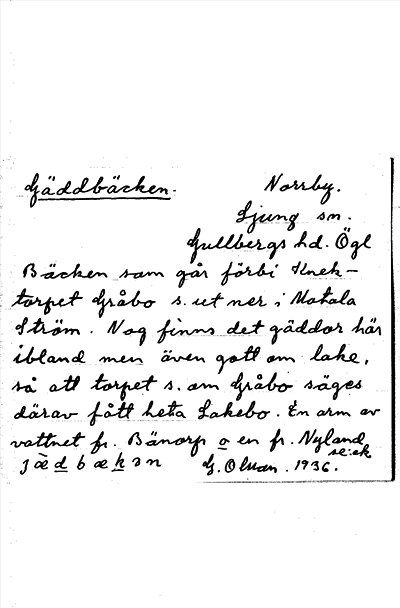 Gäddbäcken.
Norrby.
Ljung sn.
Gullbergs hd. Ögl
Bäcken som går förbi Knek-
torpet Gråbo s. ut ner i Motala
Ström. Nog finns det gäddor här
ibland men även gott om lake,
så att torpet s. om Gråbo säges
därav fått heta Lakebo. En arm av
vattnet fr. Bänorp o en fr. Nyland
se: ek
G. Olson. 1936.